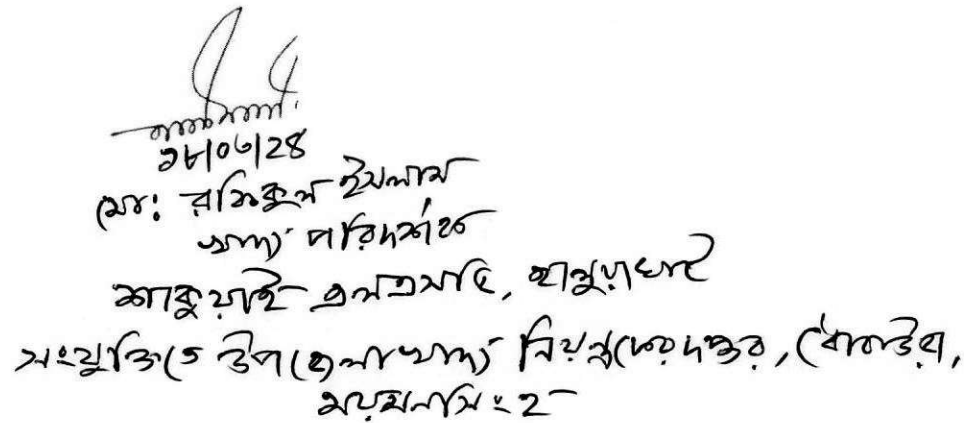 ১৮/০৬/২৪
মো: রফিকুল ইসলাম
খাদ্য পরিদর্শক
শাকুয়াই এলএসডি, হালুয়াঘাট
সংযুক্তিতে উপজেলা খাদ্য নিয়ন্ত্রকের দপ্তর, ধোবাউড়া,
ময়মনসিংহ